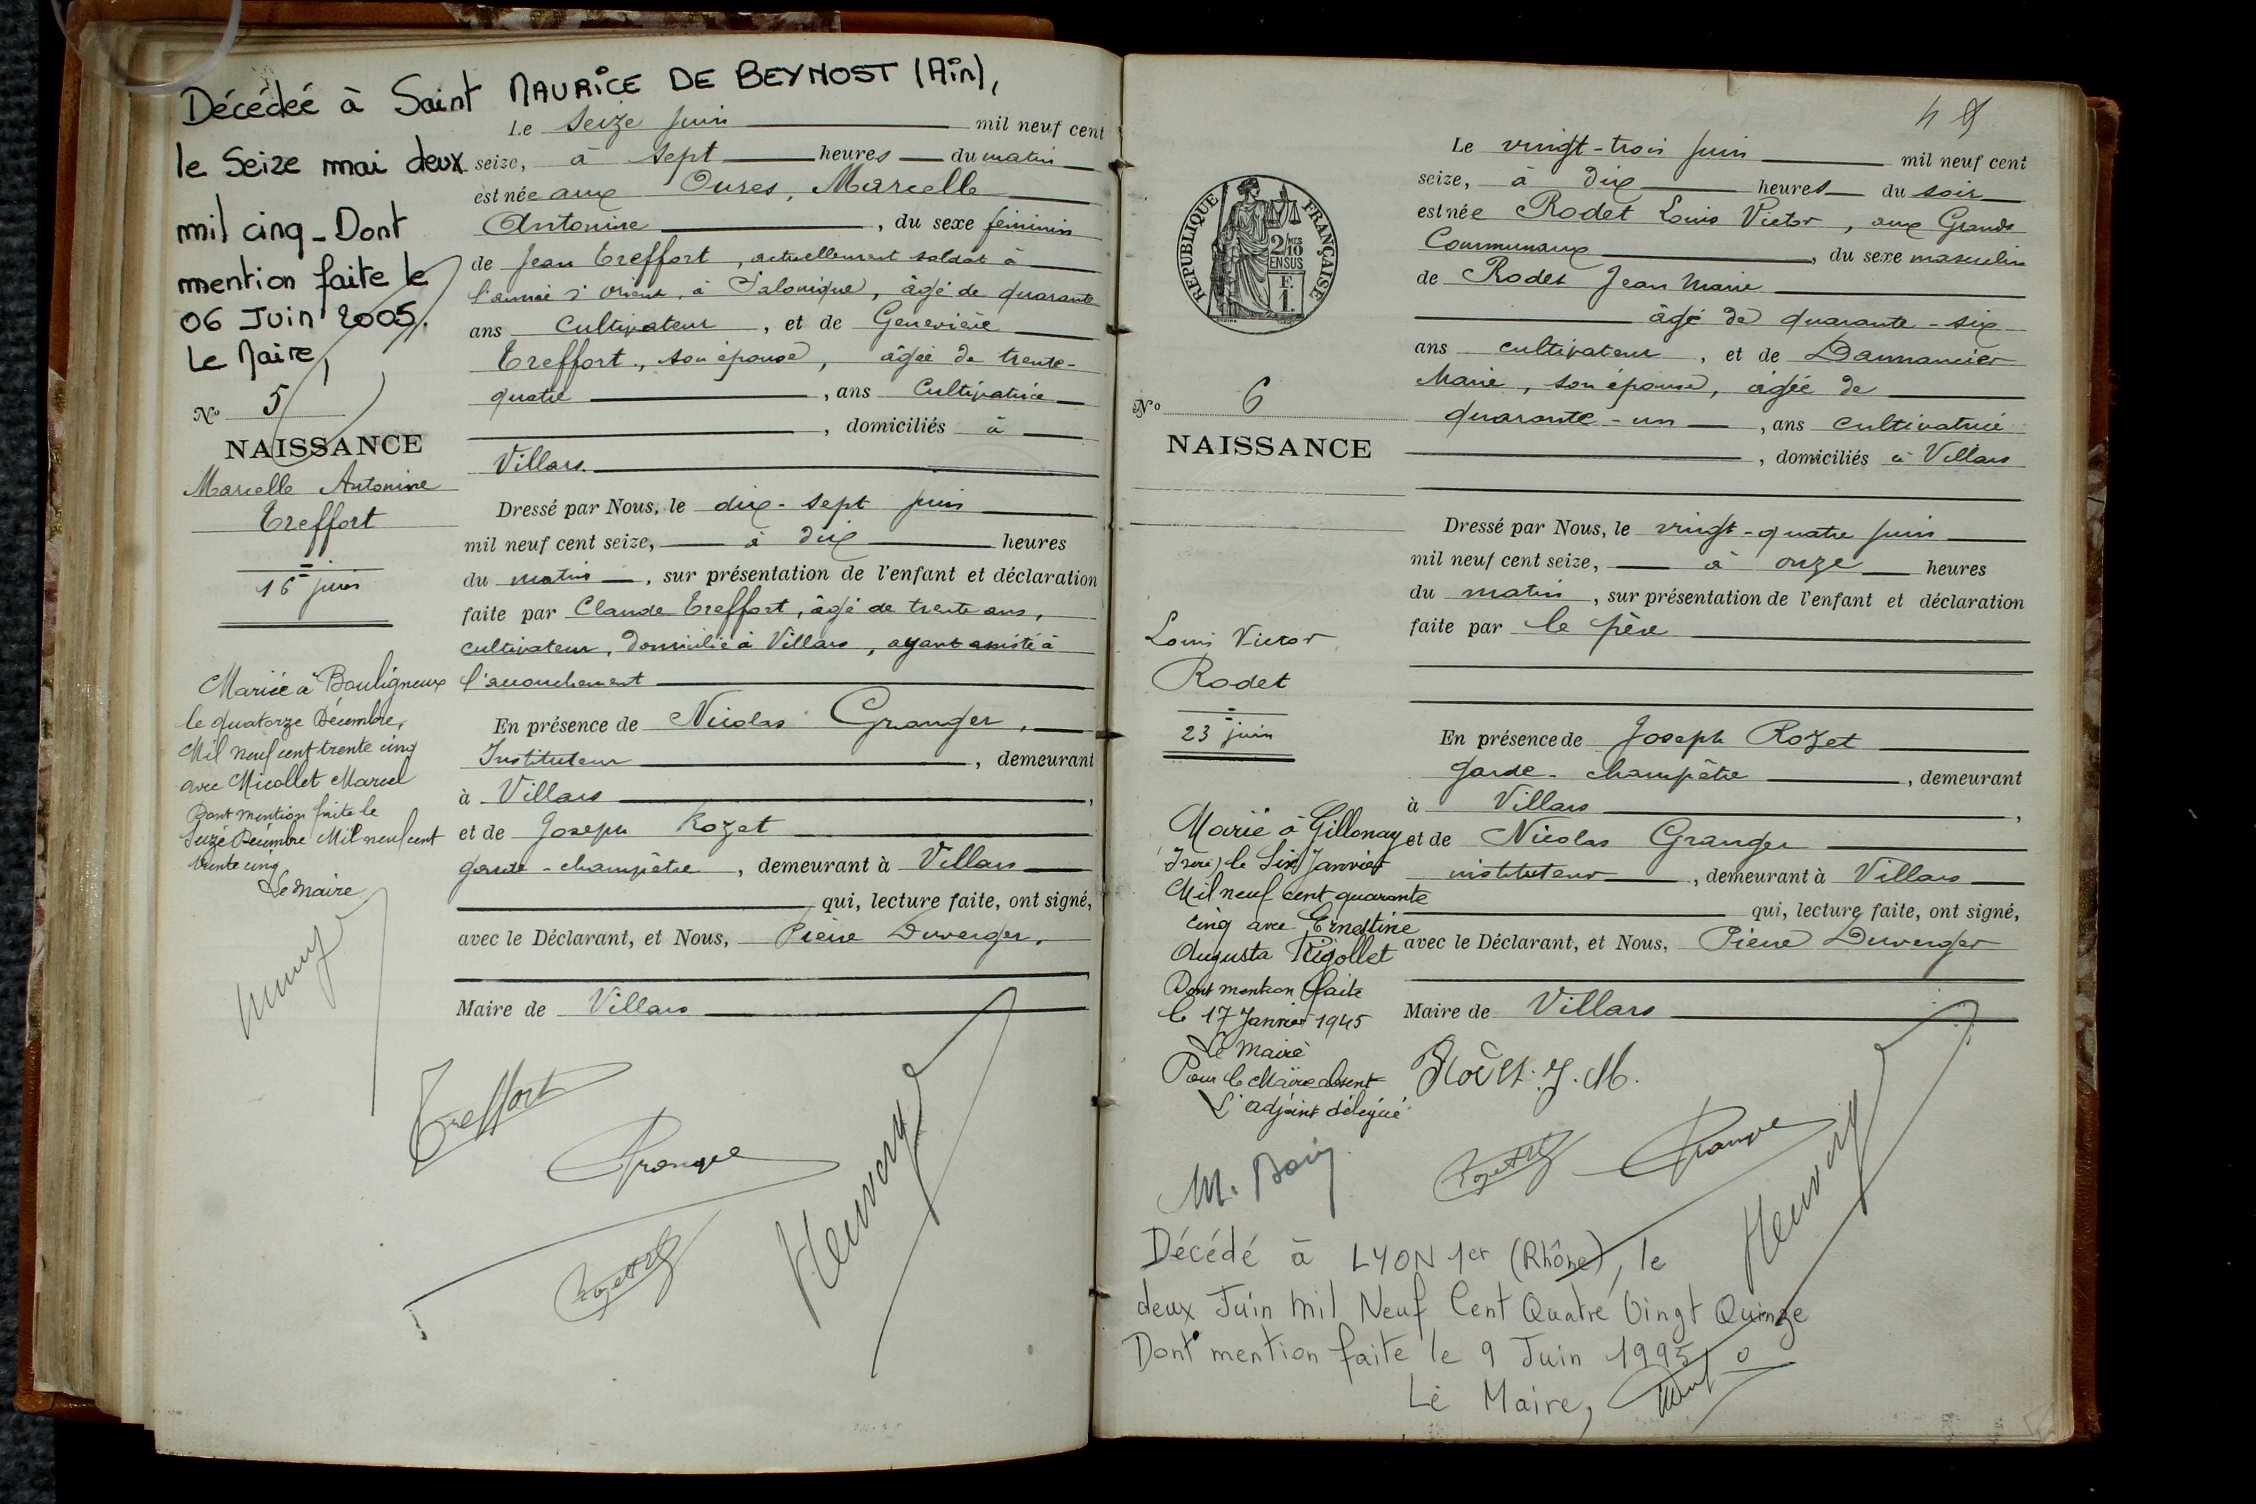 Décédée à Saint MAURICE DE BEYNOST (Ain),
le Seize mai deux
mil cinq - Dont
mention faite le
06 Juin 2005.
Le Maire,
No 5
NAISSANCE
Marcelle Antonine
Treffort
16 juin
Mariée à Bouligneux
le quatorze Décembre,
Mil neuf cent trente cinq
avec Micollet Marcel
Dont mention faite le
Seize Décembre Mil neuf cent
trente cinq
Le Maire
Le seize juin mil neuf cent
seize, à sept heures du matin
est née aux Oures, Marcelle
Antonine, du sexe féminin
de Jean Treffort, actuellement soldat à
l'armée d'Orient, à Salonique, âgé de quarante
ans cultivateur, et de Geneviève
Treffort, son épouse, âgée de trente-
quatre, ans Cultivatrice
, domiciliés à
Villars
Dressé par Nous, le dix-sept juin
mil neuf cent seize, à dix heures
du matin, sur présentation de l'enfant et déclaration
faite par Claude Treffort, âgé de trente ans,
cultivateur, domicilié à Villars, ayant assisté à
l'accouchement
En présence de Nicolas Granger,
Instituteur, demeurant
à Villars,
et de Joseph Rozet
garde-champêtre, demeurant à Villars
qui, lecture faite, ont signé,
avec le Déclarant, et Nous, Pierre Duverger.
Maire de Villars
Treffort
48
REPUBLIQUE FRANÇAISE
2/10
EN SUS
F.
1.
No 6
NAISSANCE
Louis Victor
Rodet
23 juin
Marié à Gillonay
(Isère) le Six Janvier
Mil neuf cent quarante
cinq avec Ernestine
Augusta Rigollet
Dont mention faite
le 17 Janvier 1945
Le Maire
Pour le Maire absent
L'adjoint délégué
Le vingt-trois juin mil neuf cent
seize, à dix heures du soir
est née Rodet Louis Victor, aux Grands
Communaux, du sexe masculin
de Rodet Jean Marie
âgé de quarante-six
ans cultivateur, et de Dannancier
Marie, son épouse, âgée de
quarante-un, ans cultivatrice
, domiciliés à Villars
Dressé par Nous, le vingt-quatre juin
mil neuf cent seize, à onze heures
du matin, sur présentation de l'enfant et déclaration
faite par le père
En présence de Joseph Rozet
garde-champêtre, demeurant
à Villars,
et de Nicolas Granger
instituteur, demeurant à Villars
qui, lecture faite, ont signé,
avec le Déclarant, et Nous, Pierre Duverger
Maire de Villars
J. M.
Décédé à LYON 1er (Rhône), le
deux Juin Mil Neuf Cent Quatre Vingt Quinze
Dont mention faite le 9 Juin 1995
Le Maire,